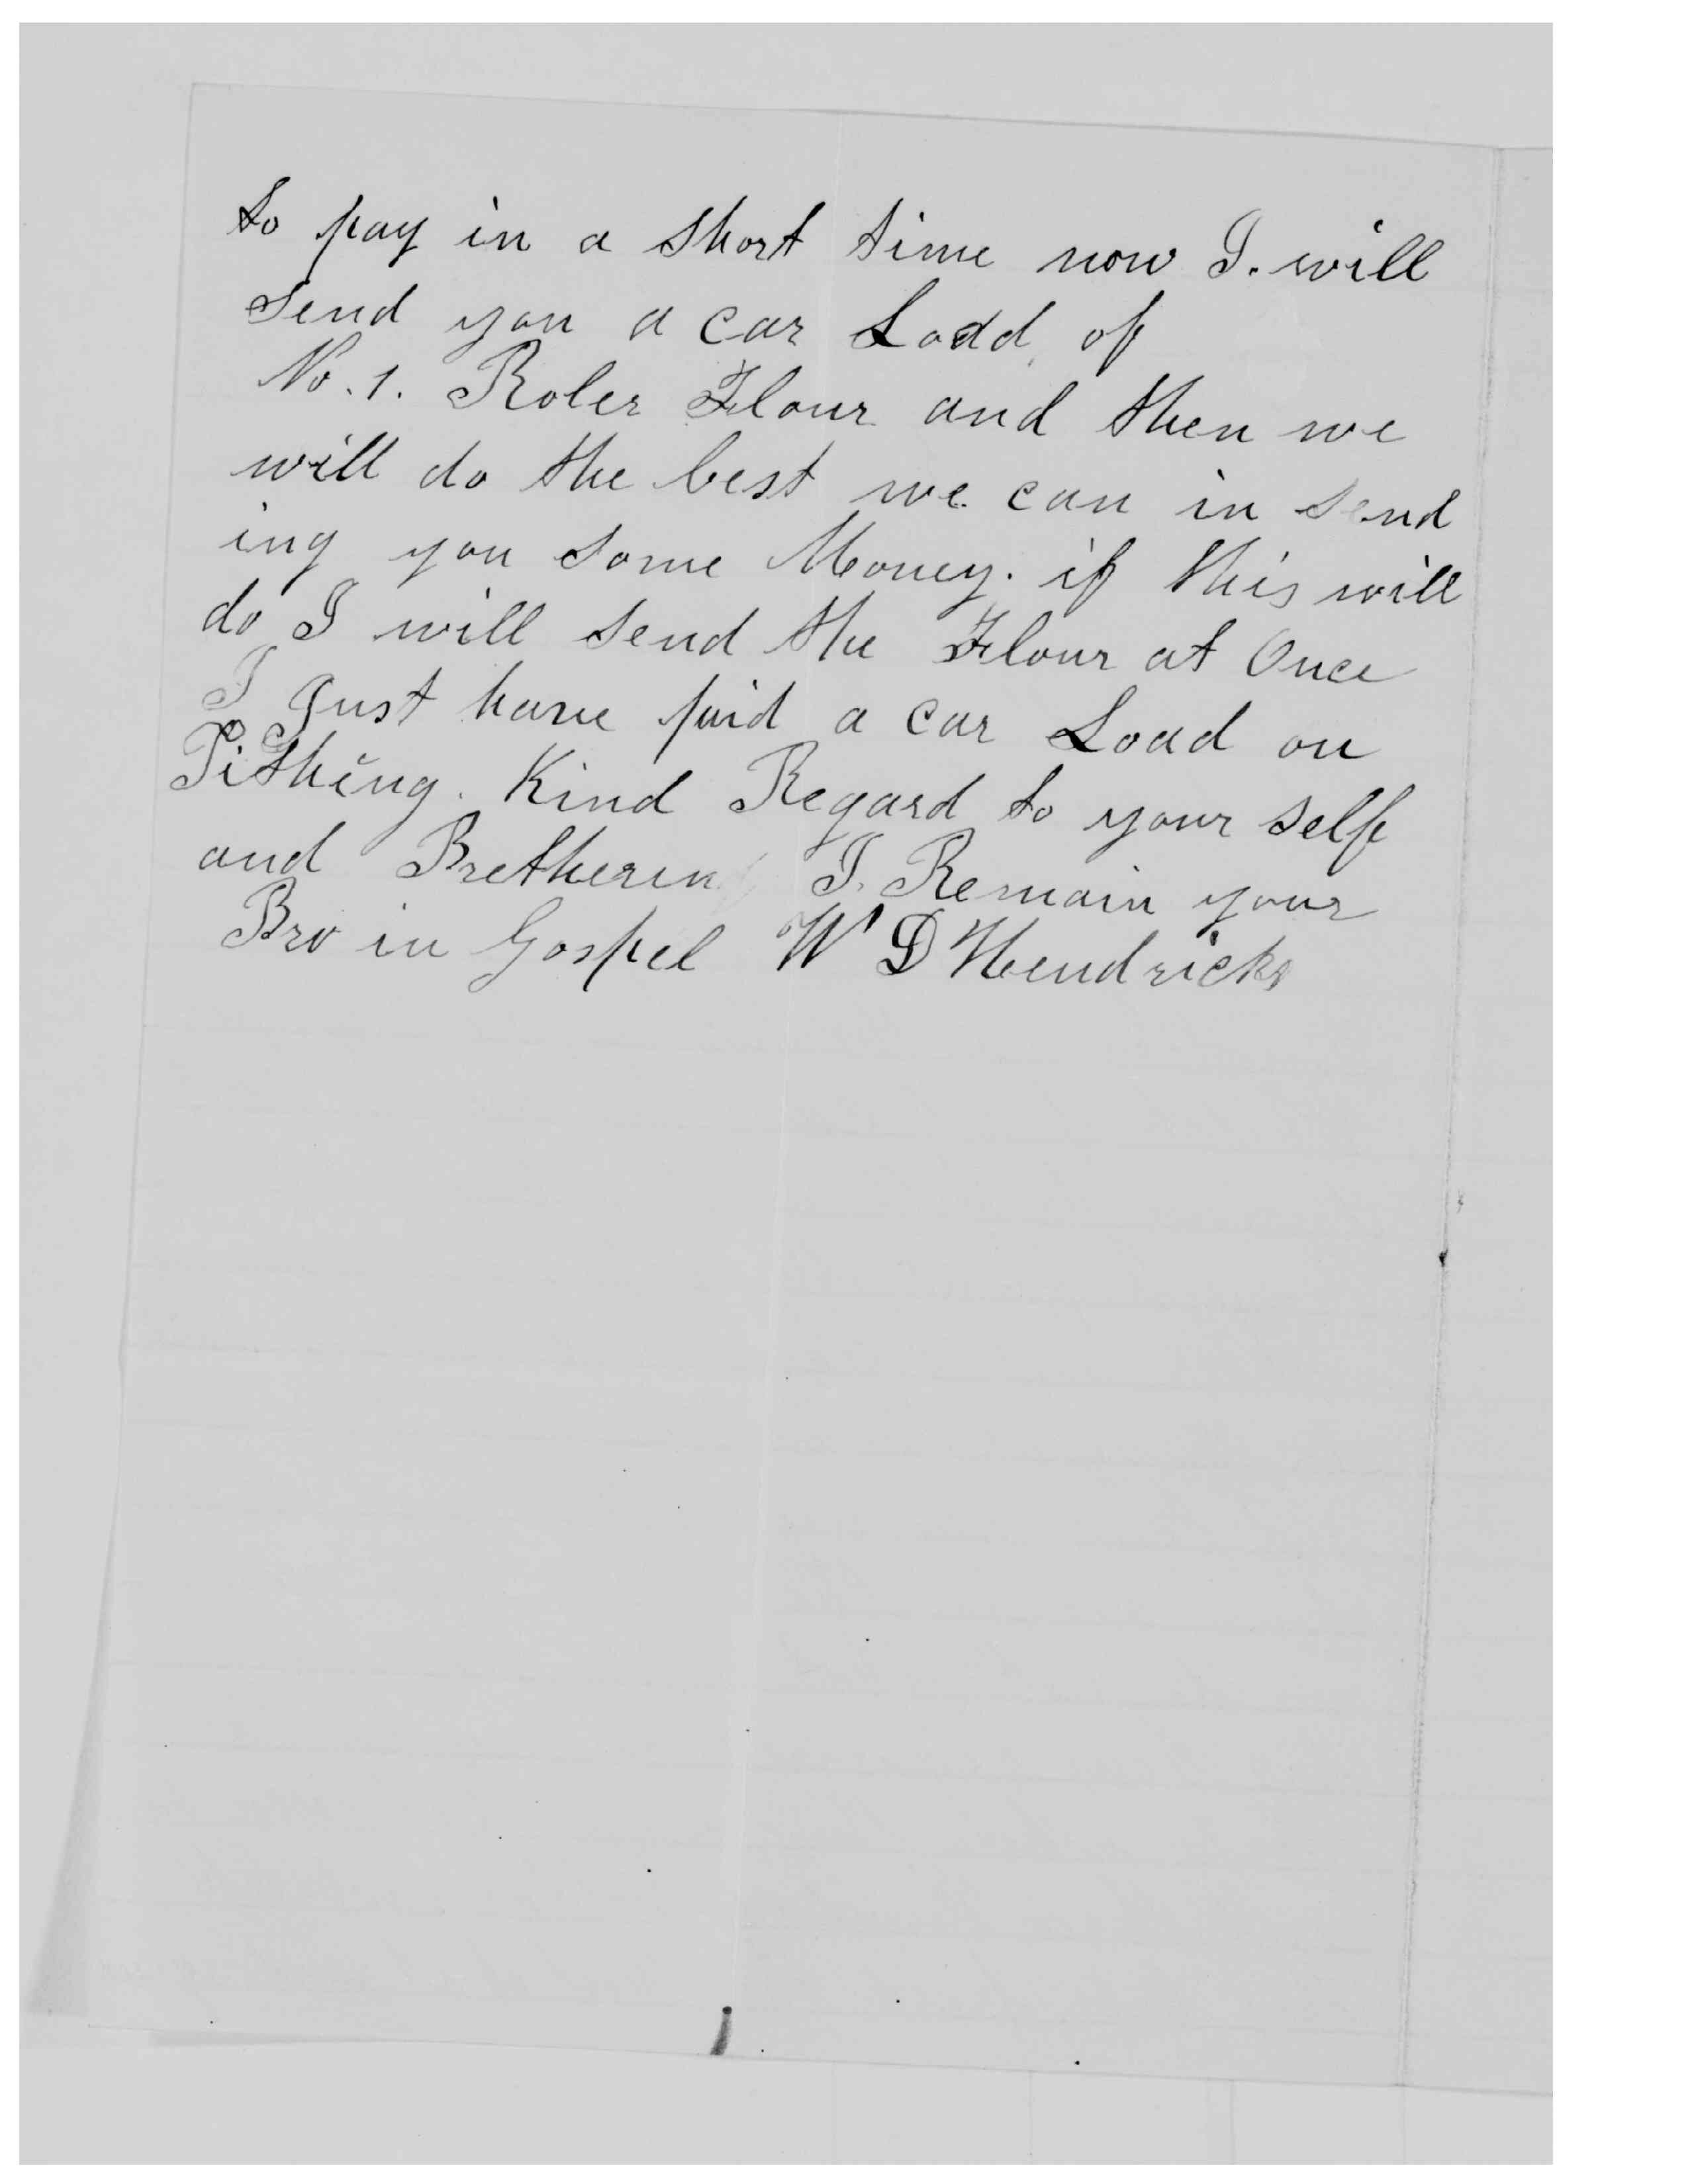 to pay in a short time now I. will
send you a car Load of
No. 1. Roler Flour and then we
will do the best we can in send
ing you some Money. if this will
do I will send the Flour at Once
I Just have paid a car Load on
Tithing. Kind Regard to your self
and Bretheren I. Remain your
Bro in Gospel W D Hendricks